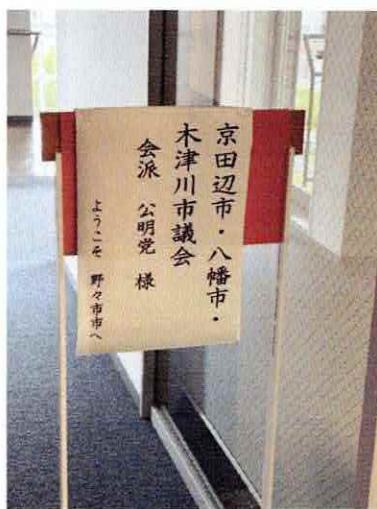 京田辺市・八幡市・
木津川市議会
会派 公明党 様
ようこそ 野々市市へ